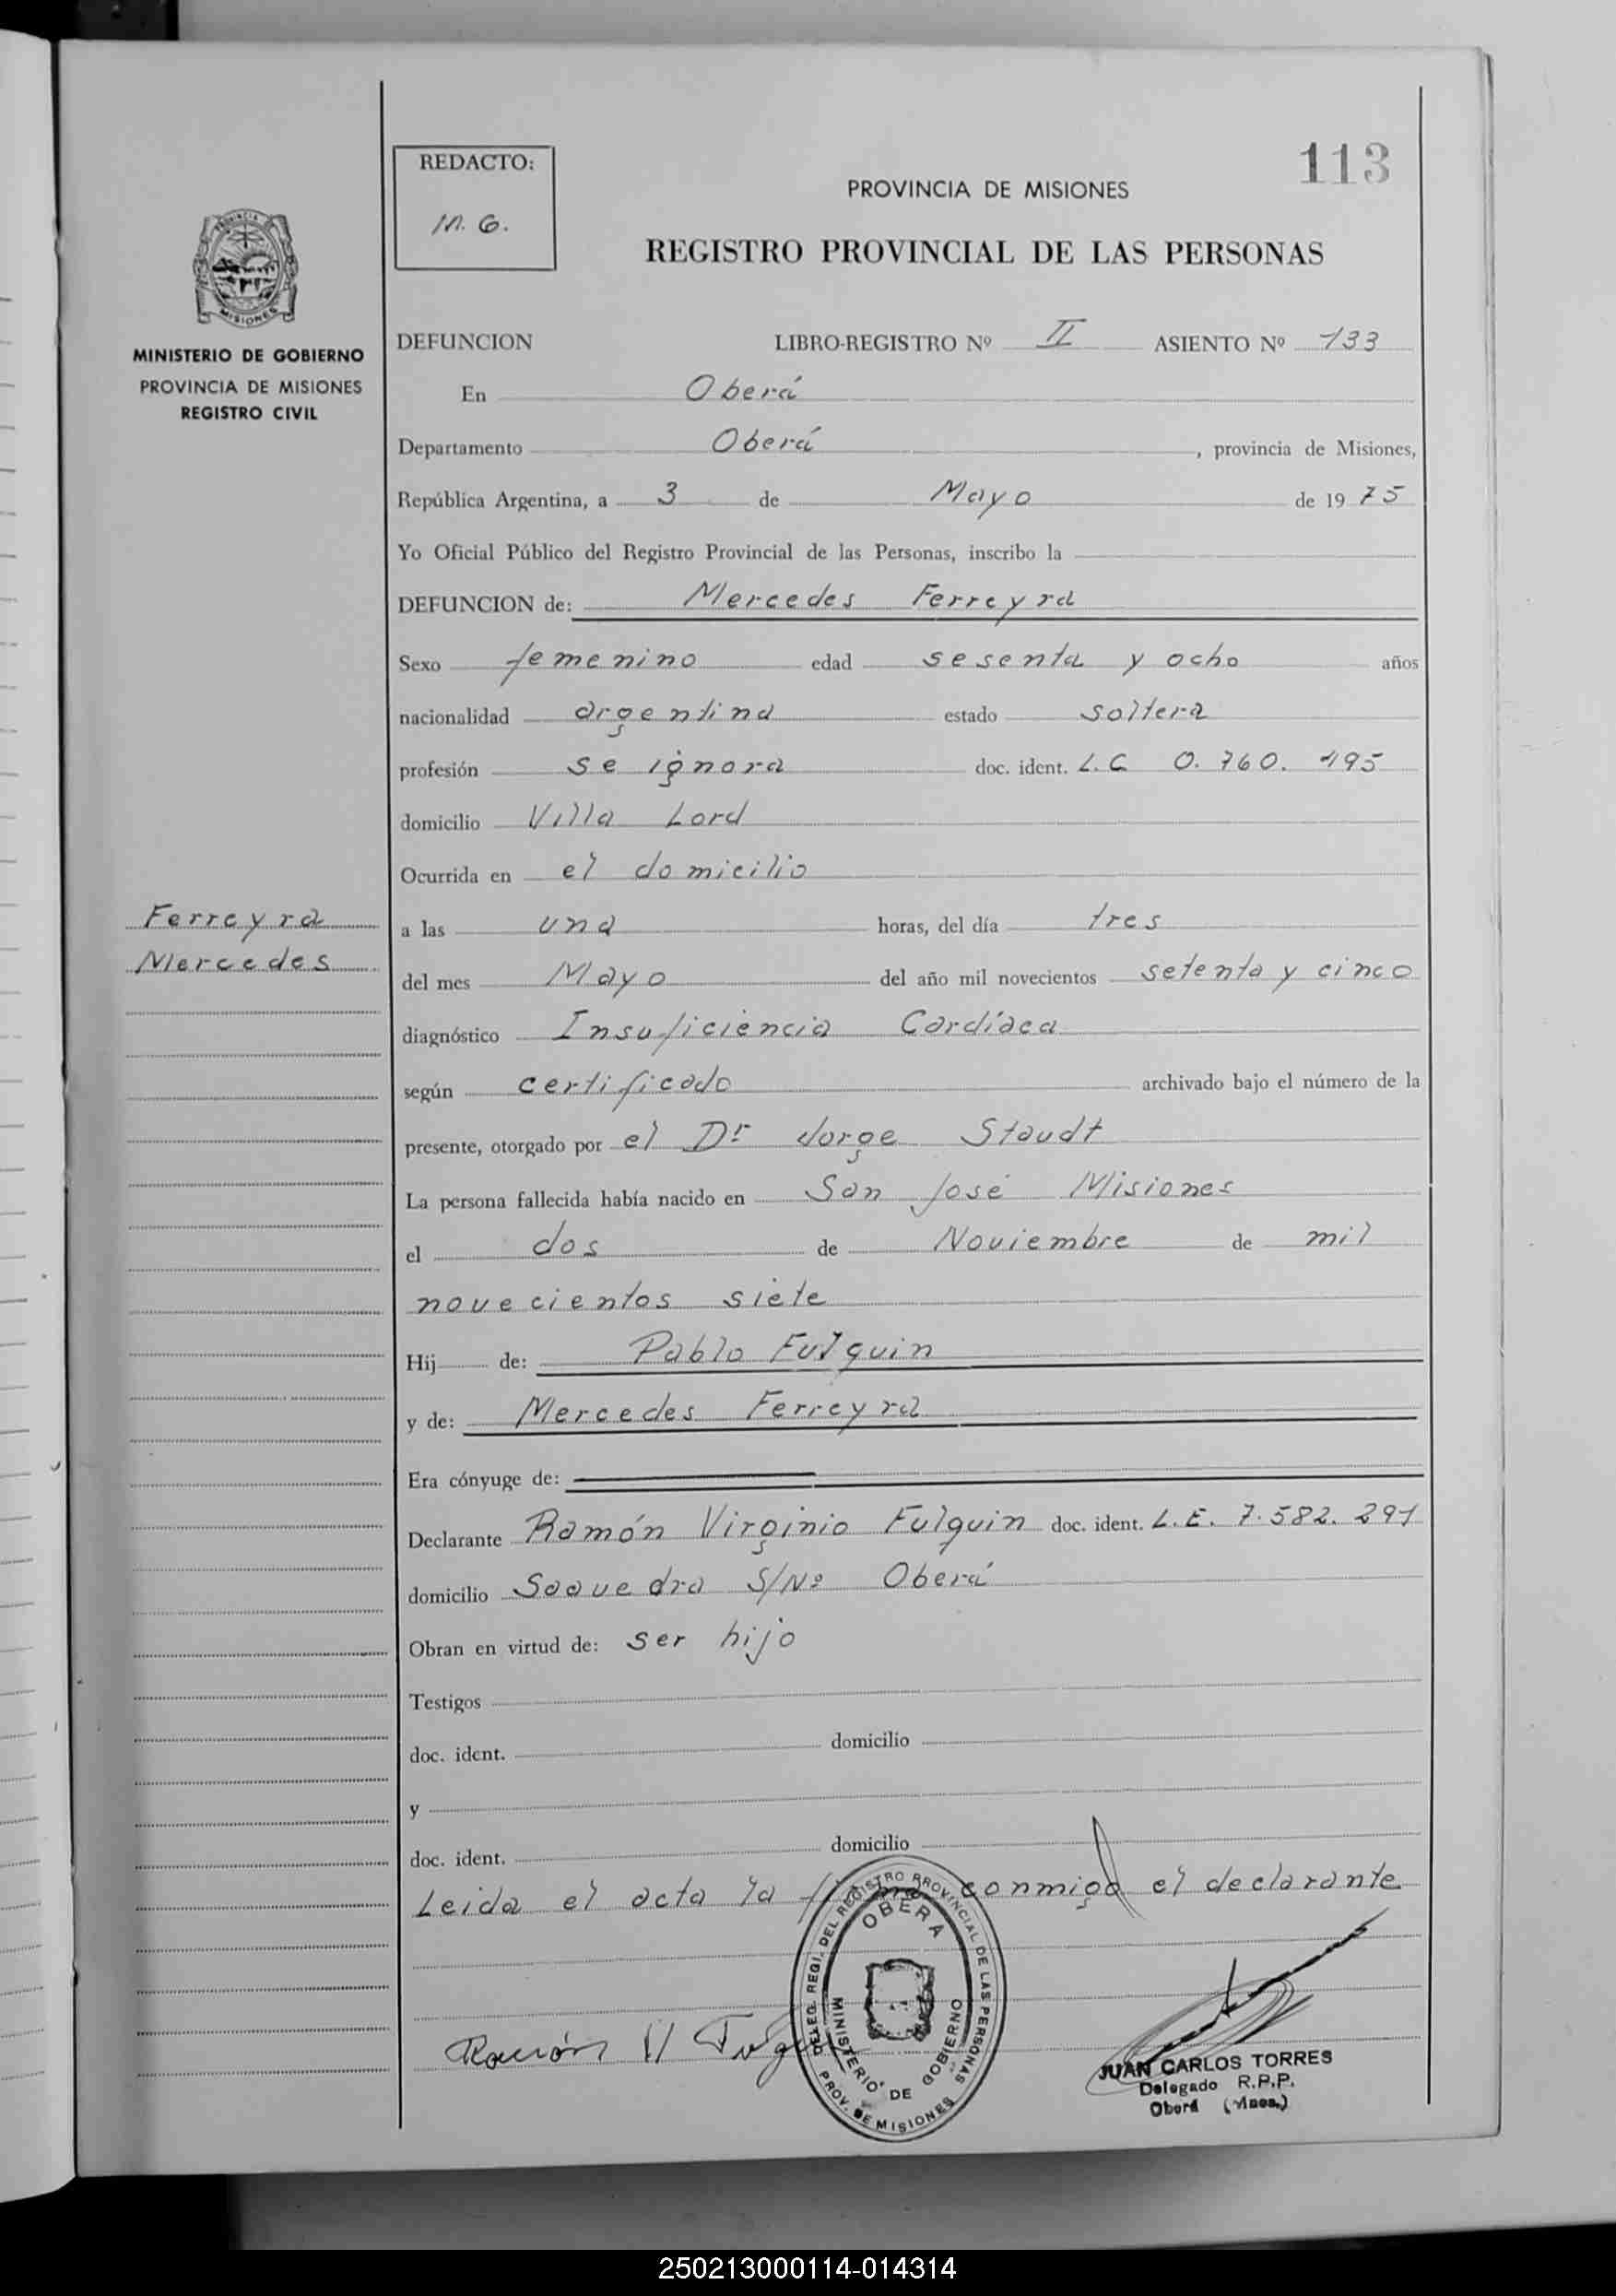 113
REDACTO:
M. G.
PROVINCIA DE MISIONES
REGISTRO PROVINCIAL DE LAS PERSONAS
PROVINCIA
MISIONES
MINISTERIO DE GOBIERNO
PROVINCIA DE MISIONES
REGISTRO CIVIL
DEFUNCION LIBRO-REGISTRO Nº II ASIENTO Nº 133
En Oberá
Departamento Oberá, provincia de Misiones,
República Argentina, a 3 de Mayo de 1975
Yo Oficial Público del Registro Provincial de las Personas, inscribo la
DEFUNCION de: Mercedes Ferreyra
Sexo femenino edad sesenta y ocho años
nacionalidad argentina estado soltera
profesión se ignora doc. ident. L.C 0.760.195
domicilio Villa Lord
Ocurrida en el domicilio
Ferreyra
Mercedes
a las una horas, del día tres
del mes Mayo del año mil novecientos setenta y cinco
diagnóstico Insuficiencia Cardíaca
según certificado archivado bajo el número de la
presente, otorgado por el Dr Jorge Staudt
La persona fallecida había nacido en San José Misiones
el dos de Noviembre de mil
novecientos siete
Hij de: Pablo Fulquin
y de: Mercedes Ferreyra
Era cónyuge de:
Declarante Ramón Virginio Fulquin doc. ident. L.E. 7.582.291
domicilio Saavedra S/Nº Oberá
Obran en virtud de: ser hijo
Testigos
doc. ident. domicilio
y
doc. ident. domicilio
Leida el acta la firma conmigo el declarante
DELEG. REGI. DEL REGISTRO PROVINCIAL DE LAS PERSONAS
OBERA
MINISTERIO DE GOBIERNO
PROV. DE MISIONES
Ramón V
JUAN CARLOS TORRES
Delegado R.P.P.
Oberá (Mnes.)
250213000114-014314